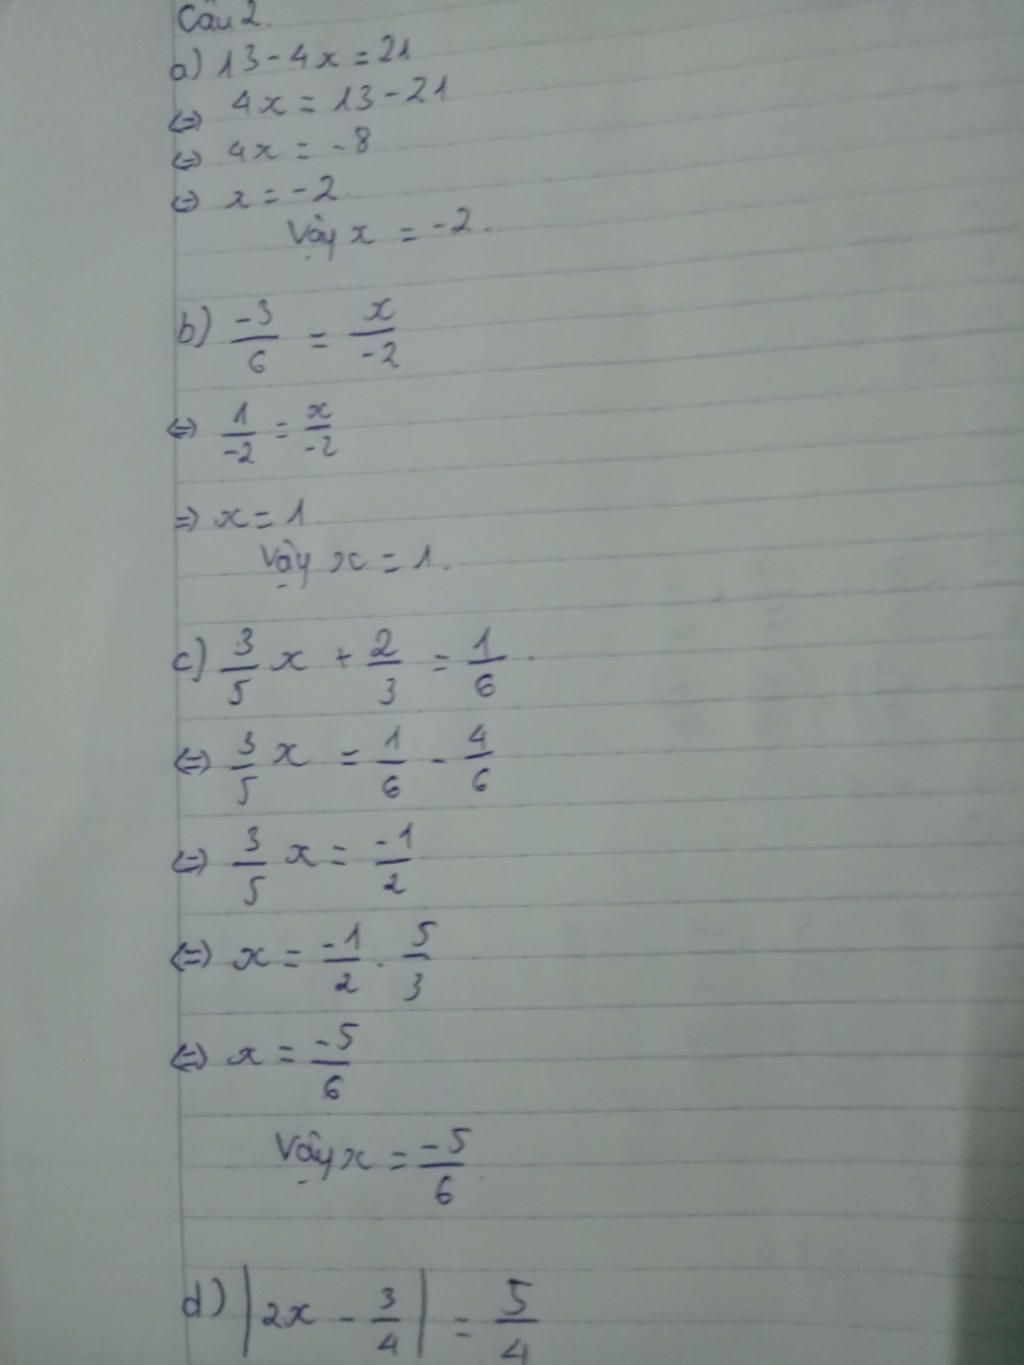 Câu 2.
a) 13 - 4x = 21
⇔ 4x = 13 - 21
⇔ 4x = -8
⇔ x = -2.
Vậy x = -2.
b) -3/6 = x/-2
⇔ 1/-2 = x/-2
⇒ x = 1
Vậy x = 1.
c) 3/5 x + 2/3 = 1/6.
⇔ 3/5 x = 1/6 - 4/6
⇔ 3/5 x = -1/2
⇔ x = -1/2 . 5/3
⇔ x = -5/6
Vậy x = -5/6
d) |2x - 3/4| = 5/4